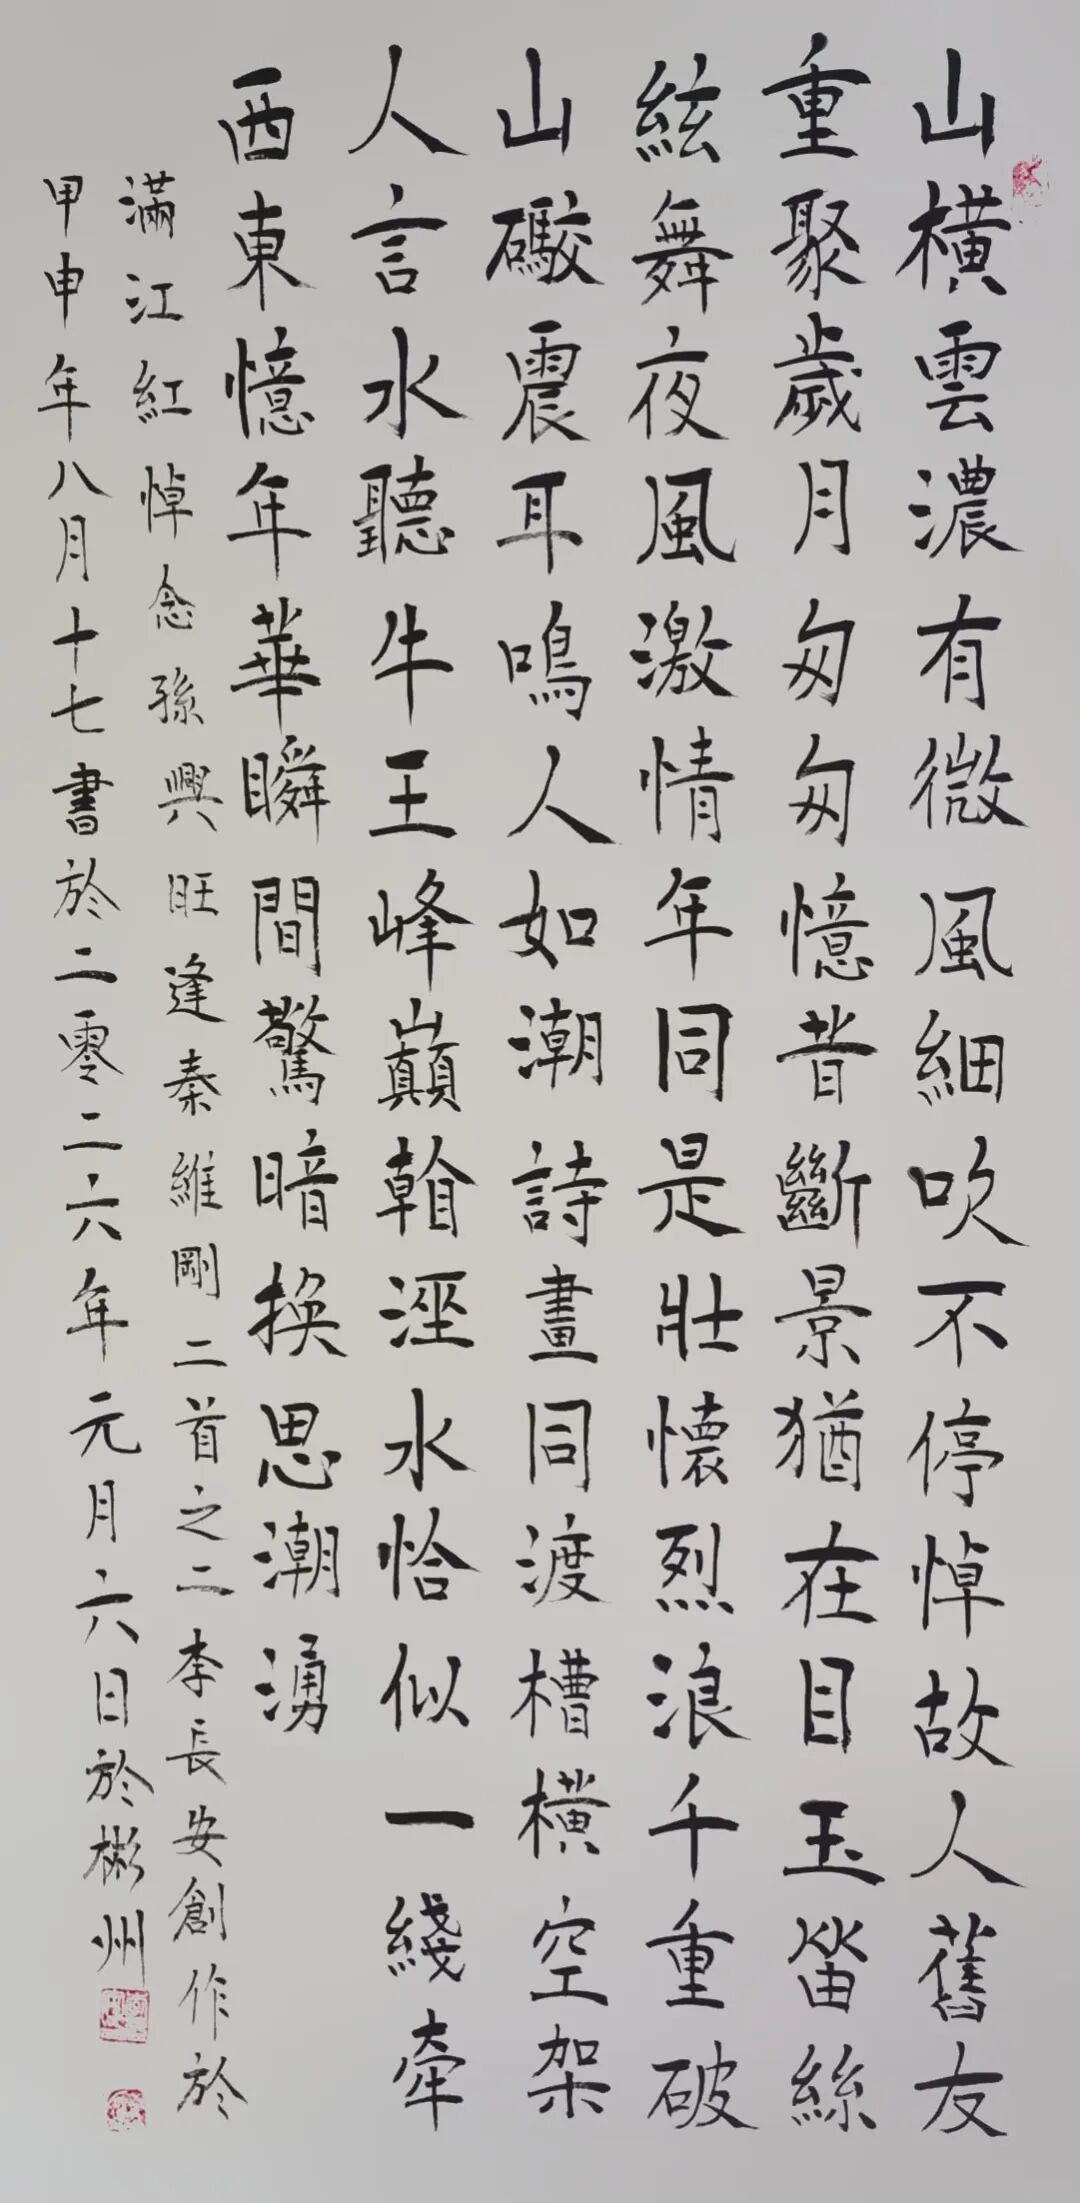 山橫雲濃有微風細吹不停悼故人舊友
重聚歲月匆匆憶昔斷景猶在目玉笛絲
絃舞夜風激情年同是壯懷烈浪千重破
山礮震耳鳴人如潮詩畫同渡槽橫空架
人言水聽牛王峰巔翰涇水恰似一綫牽
西東憶年華瞬間驚暗換思潮湧
滿江紅悼念孫興旺逢秦維剛二首之二李長安創作於
甲申年八月十七書於二零二六年元月六日於彬州